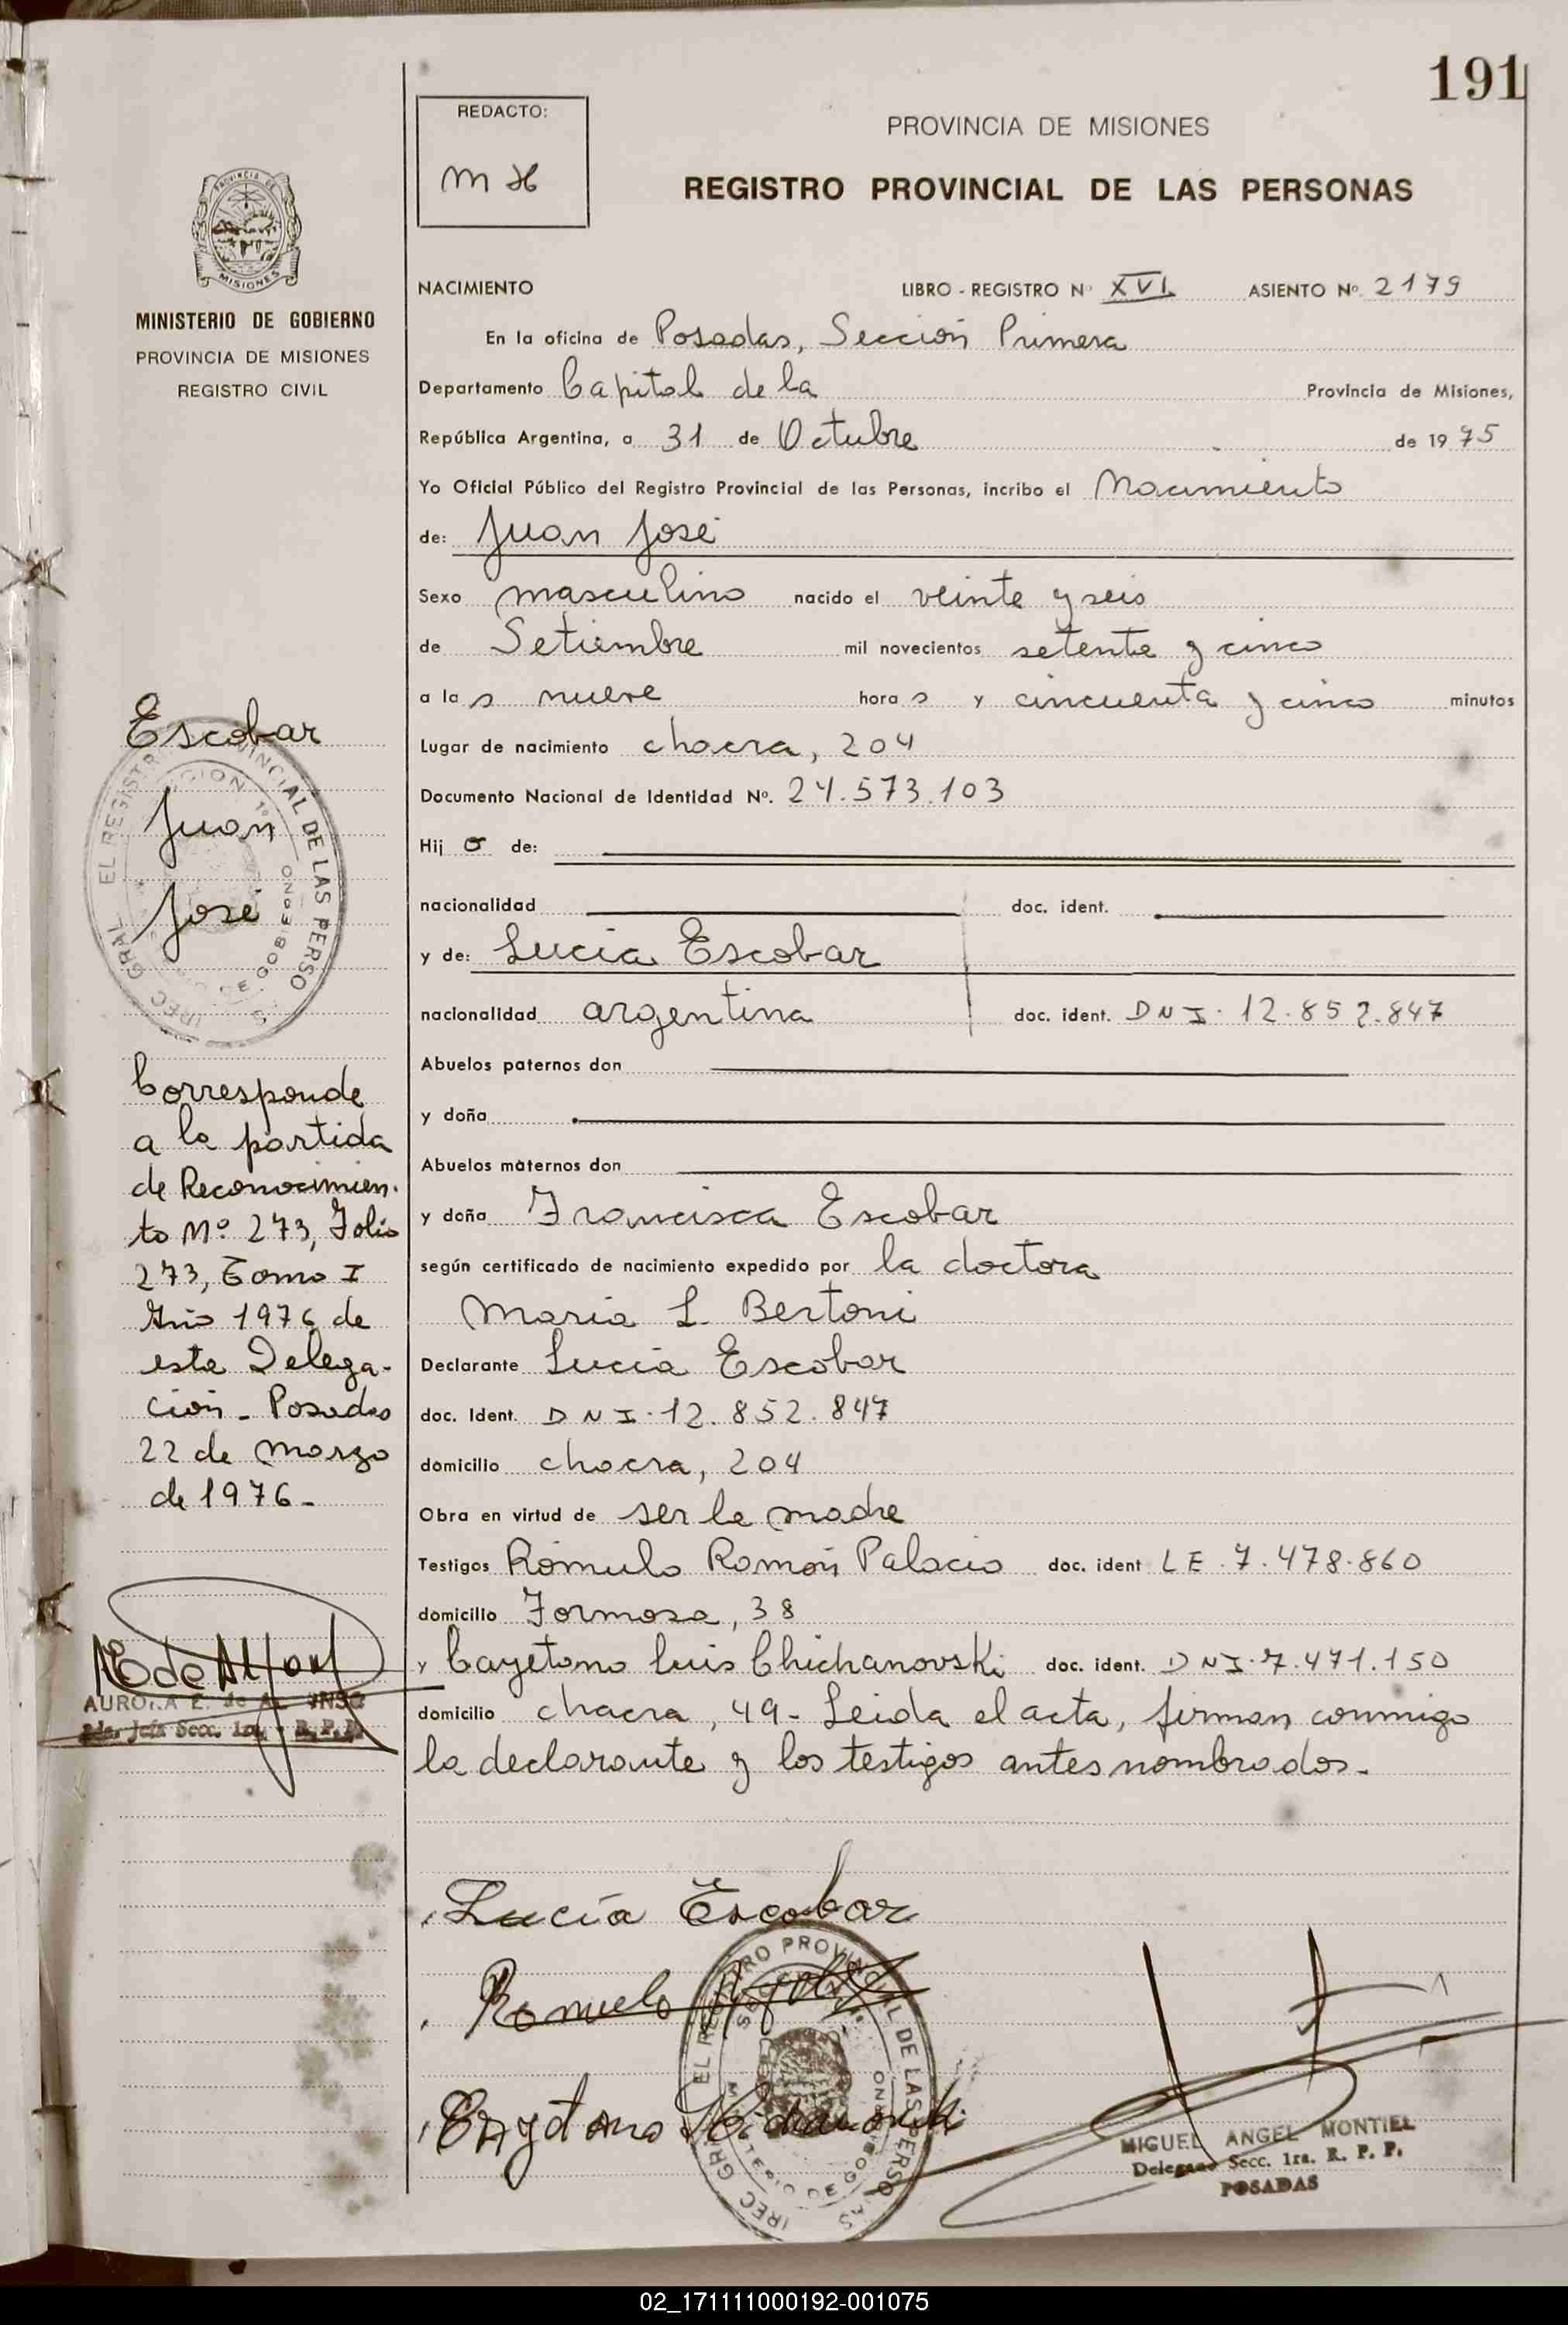 191
REDACTO:
M H
PROVINCIA DE MISIONES
REGISTRO PROVINCIAL DE LAS PERSONAS
PROVINCIA DE
MISIONES
MINISTERIO DE GOBIERNO
PROVINCIA DE MISIONES
REGISTRO CIVIL
NACIMIENTO LIBRO - REGISTRO Nº XVI ASIENTO Nº 2179
En la oficina de Posadas, Sección Primera
Departamento Capital de la Provincia de Misiones,
República Argentina, a 31 de Octubre de 1975
Yo Oficial Público del Registro Provincial de las Personas, incribo el Nacimiento
de: Juan José
Sexo masculino nacido el veinte y seis
de Setiembre mil novecientos setenta y cinco
a las nueve horas y cincuenta y cinco minutos
Lugar de nacimiento chacra, 204
Documento Nacional de Identidad Nº. 24.573.103
Hijo de:
nacionalidad doc. ident.
y de: Lucía Escobar
nacionalidad argentina doc. ident. DNI. 12.852.847
Abuelos paternos don
y doña
Abuelos maternos don
y doña Francisca Escobar
según certificado de nacimiento expedido por la doctora
María L. Bertoni
Declarante Lucía Escobar
doc. Ident. DNI. 12.852.847
domicilio chacra, 204
Obra en virtud de ser la madre
Testigos Rómulo Ramón Palacio doc. ident LE. 7.478.860
domicilio Formosa, 38
y Cayetano Luis Chichanovski doc. ident. DNI. 7.471.150
domicilio chacra, 49- Leída el acta, firman conmigo
la declarante y los testigos antes nombrados.
Escobar
Juan
José
Corresponde
a la partida
de Reconocimien-
to Nº 273, Folio
273, Tomo I
Año 1976 de
esta Delega-
ción - Posadas
22 de marzo
de 1976-
AURORA E. de ALFONSO
Jefa Secc. 1ra. R. P. P.
Lucía Escobar
Romulo
Cayetano Chichanovski
EL REGISTRO PROVINCIAL DE LAS PERSONAS
MINISTERIO DE GOBIERNO
MIGUEL ANGEL MONTIEL
Delegado Secc. 1ra. R. P. P.
POSADAS
02_171111000192-001075